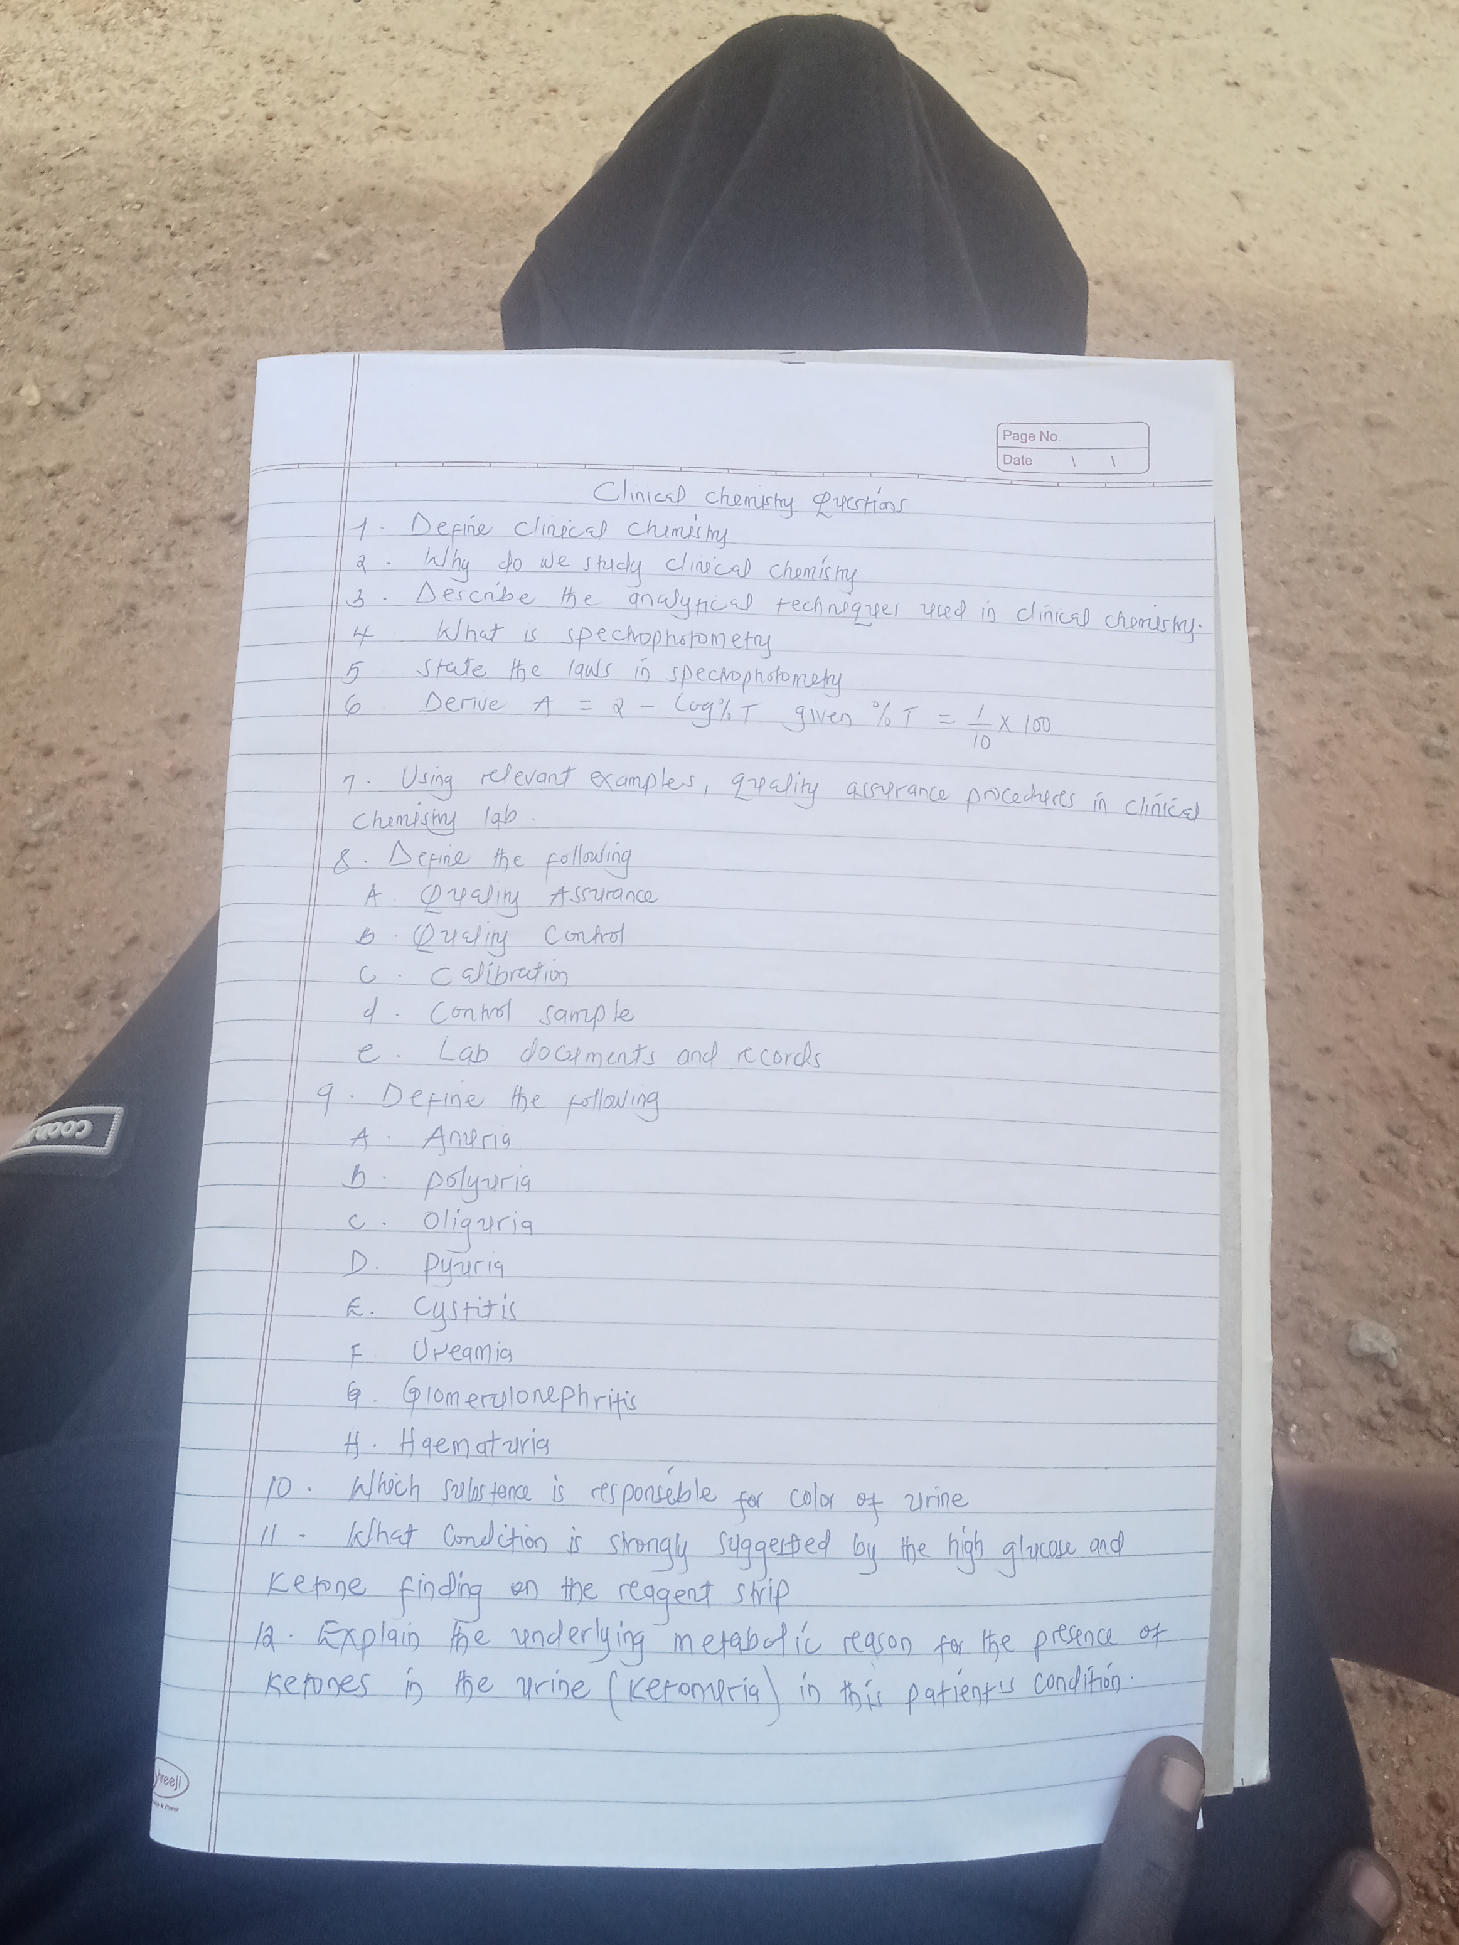 Page No.
Date
Clinical chemistry Questions
1. Define clinical chemistry
2. Why do we study clinical chemistry
3. Describe the analytical techniques used in clinical chemistry.
4 What is spectrophotometry
5 State the laws in spectrophotometry
6 Derive A = 2 - Log%T given %T = 1/10 x 100
7. Using relevant examples, quality assurance procedures in clinical
chemistry lab.
8. Define the following
A. Quality Assurance
B. Quality Control
C. Calibration
d. Control sample
e. Lab documents and records
9. Define the following
A. Anuria
B. polyuria
C. Oliguria
D. Pyuria
E. Cystitis
F Ureamia
G. Glomerulonephritis
H. Haematuria
10. Which substance is responsible for color of urine
11. What condition is strongly suggested by the high glucose and
Ketone finding on the reagent strip
12. Explain the underlying metabolic reason for the presence of
Ketones in the urine (Ketonuria) in this patient's condition.